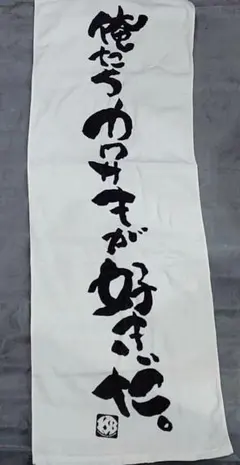 俺たちカワサキが好きだ。